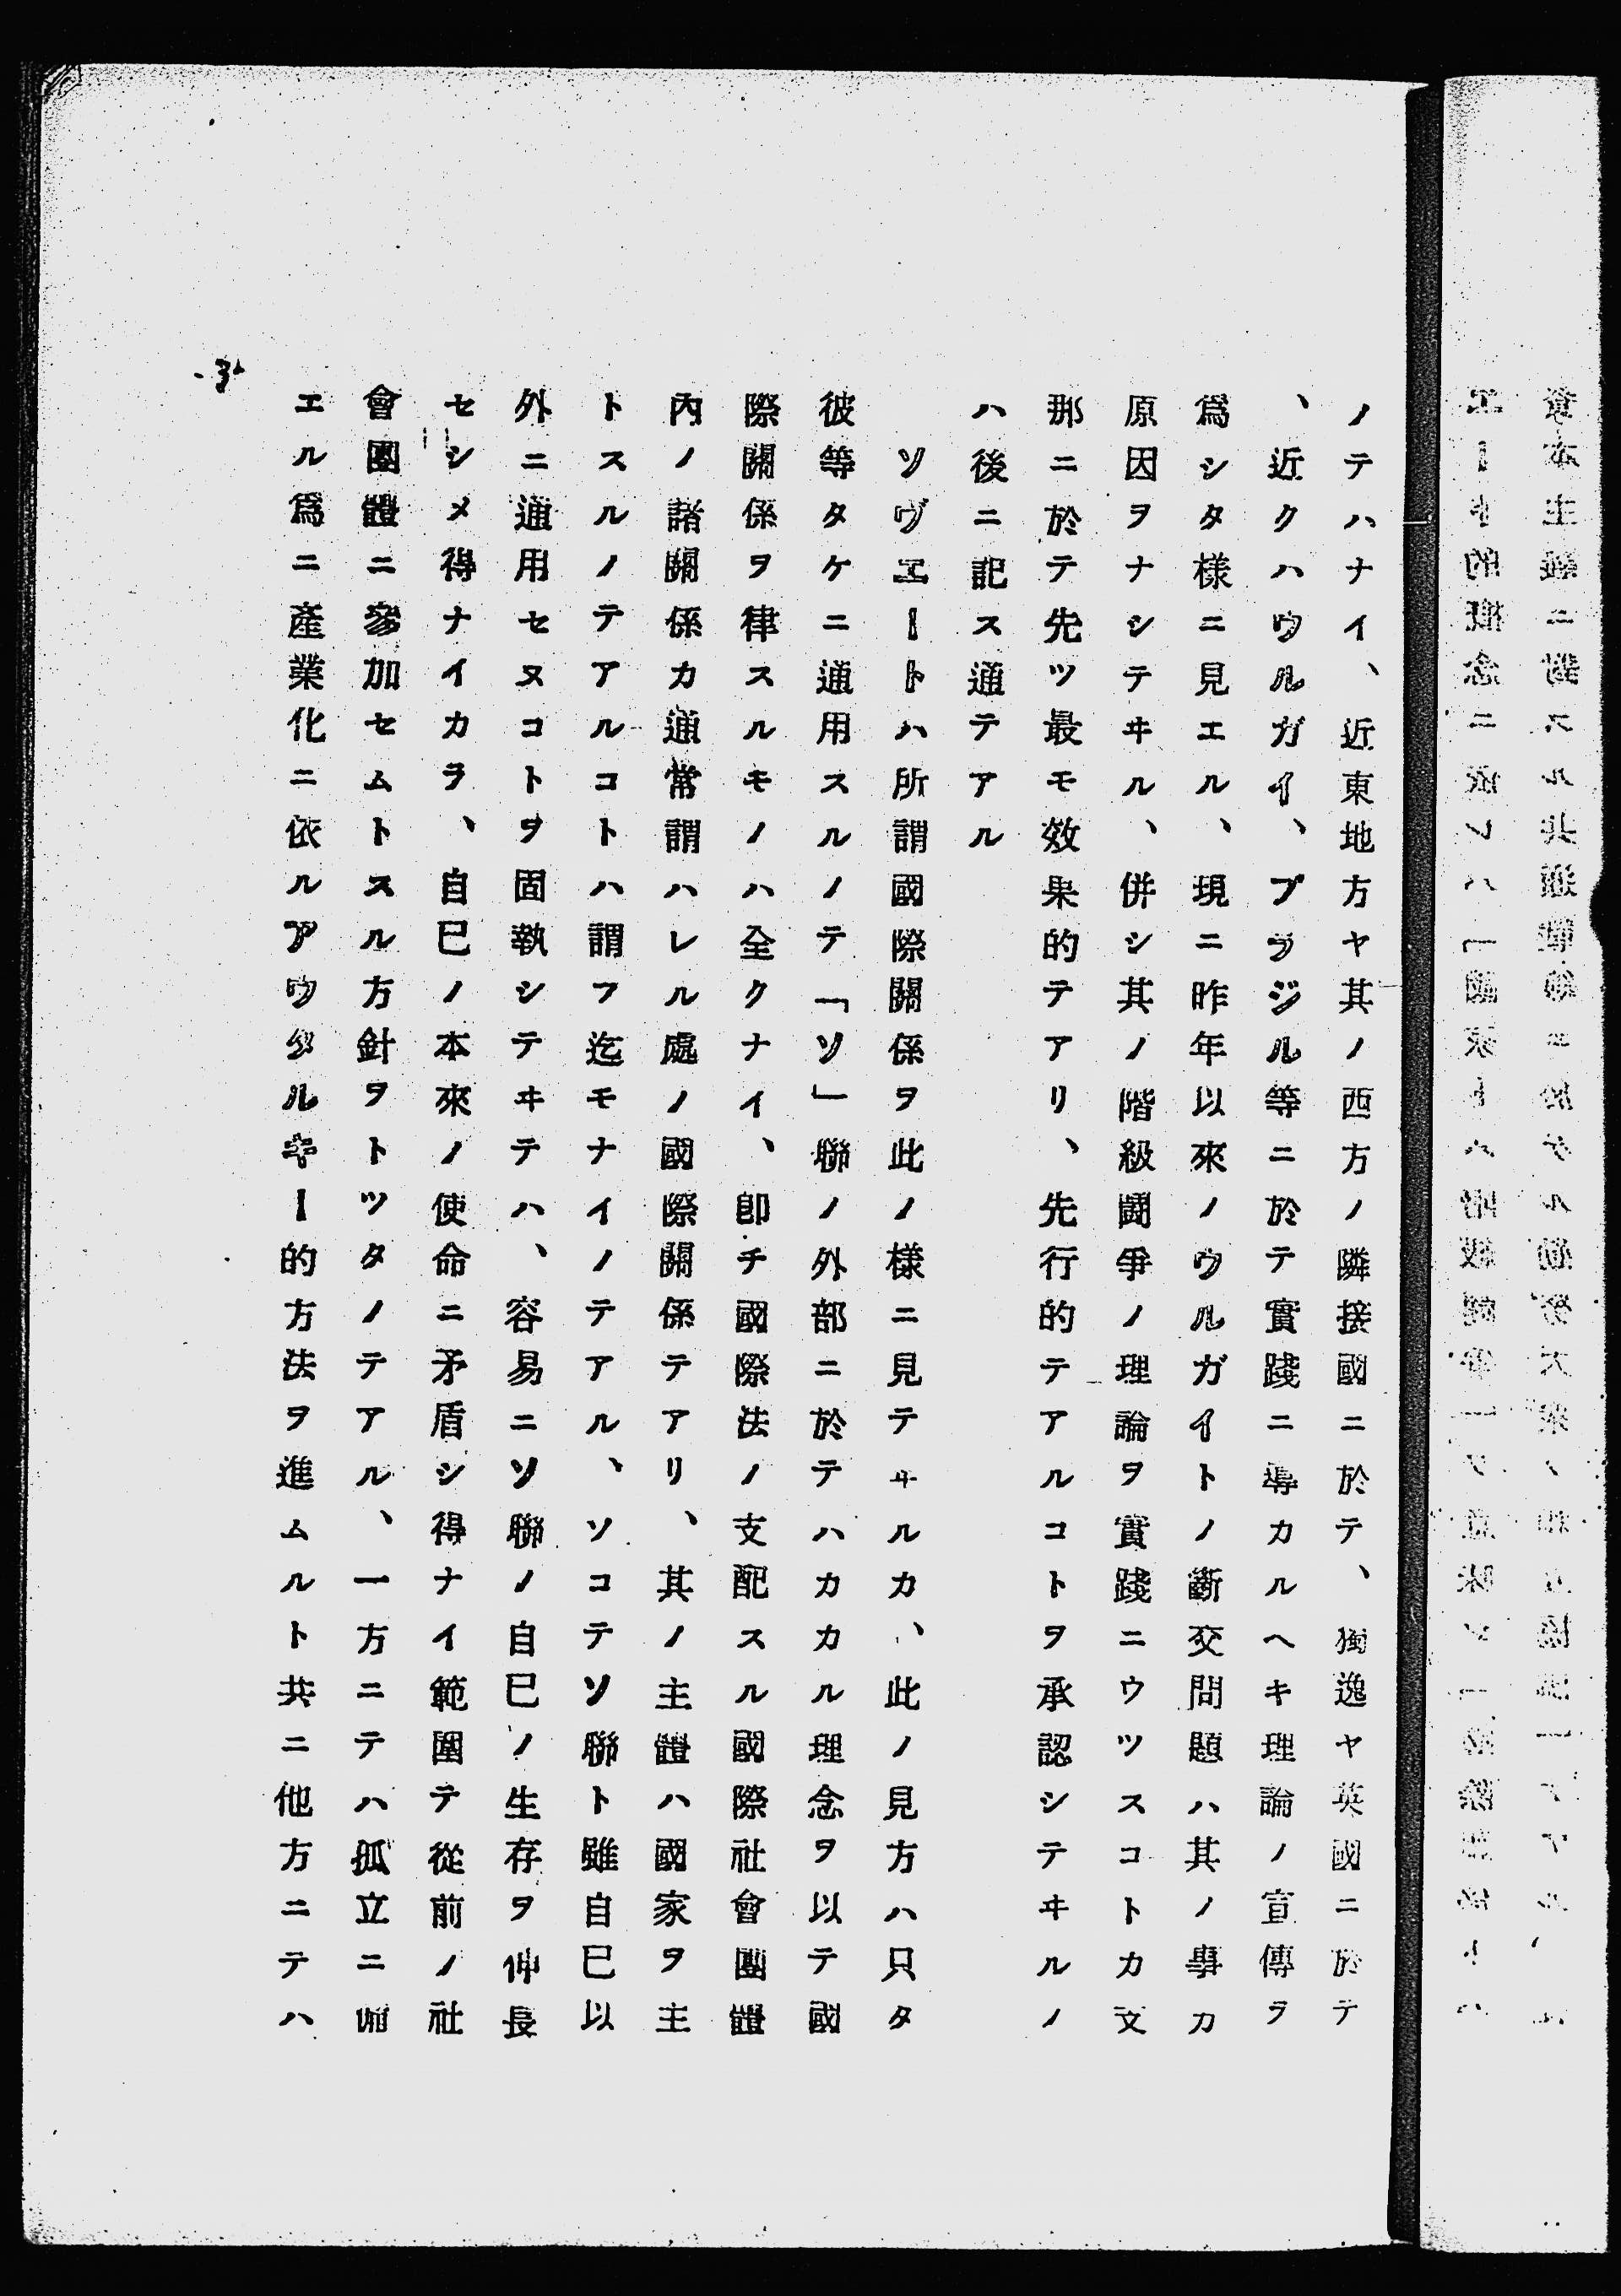 ノテハナイ、近東地方ヤ其ノ西方ノ隣接國ニ於テ、獨逸ヤ英國ニ於テ
、近クハウルガイ、ブラジル等ニ於テ實踐ニ導カルヘキ理論ノ宣傳ヲ
爲シタ樣ニ見エル、現ニ昨年以來ノウルガイトノ斷交問題ハ其ノ事カ
原因ヲナシテヰル、併シ其ノ階級鬪爭ノ理論ヲ實踐ニウツスコトカ支
那ニ於テ先ツ最モ效果的テアリ、先行的テアルコトヲ承認シテヰルノ
ハ後ニ記ス通テアル
ソヴエートハ所謂國際關係ヲ此ノ樣ニ見テヰルカ、此ノ見方ハ只タ
彼等タケニ通用スルノテ「ソ」聯ノ外部ニ於テハカカル理念ヲ以テ國
際關係ヲ律スルモノハ全クナイ、卽チ國際法ノ支配スル國際社會團體
內ノ諸關係カ通常謂ハレル處ノ國際關係テアリ、其ノ主體ハ國家ヲ主
トスルノテアルコトハ謂フ迄モナイノテアル、ソコテソ聯ト雖自己以
外ニ通用セヌコトヲ固執シテヰテハ、容易ニソ聯ノ自己ノ生存ヲ伸長
セシメ得ナイカラ、自己ノ本來ノ使命ニ矛盾シ得ナイ範圍テ從前ノ社
會團體ニ參加セムトスル方針ヲトツタノテアル、一方ニテハ孤立ニ備
エル爲ニ產業化ニ依ルアウタルキー的方法ヲ進ムルト共ニ他方ニテハ